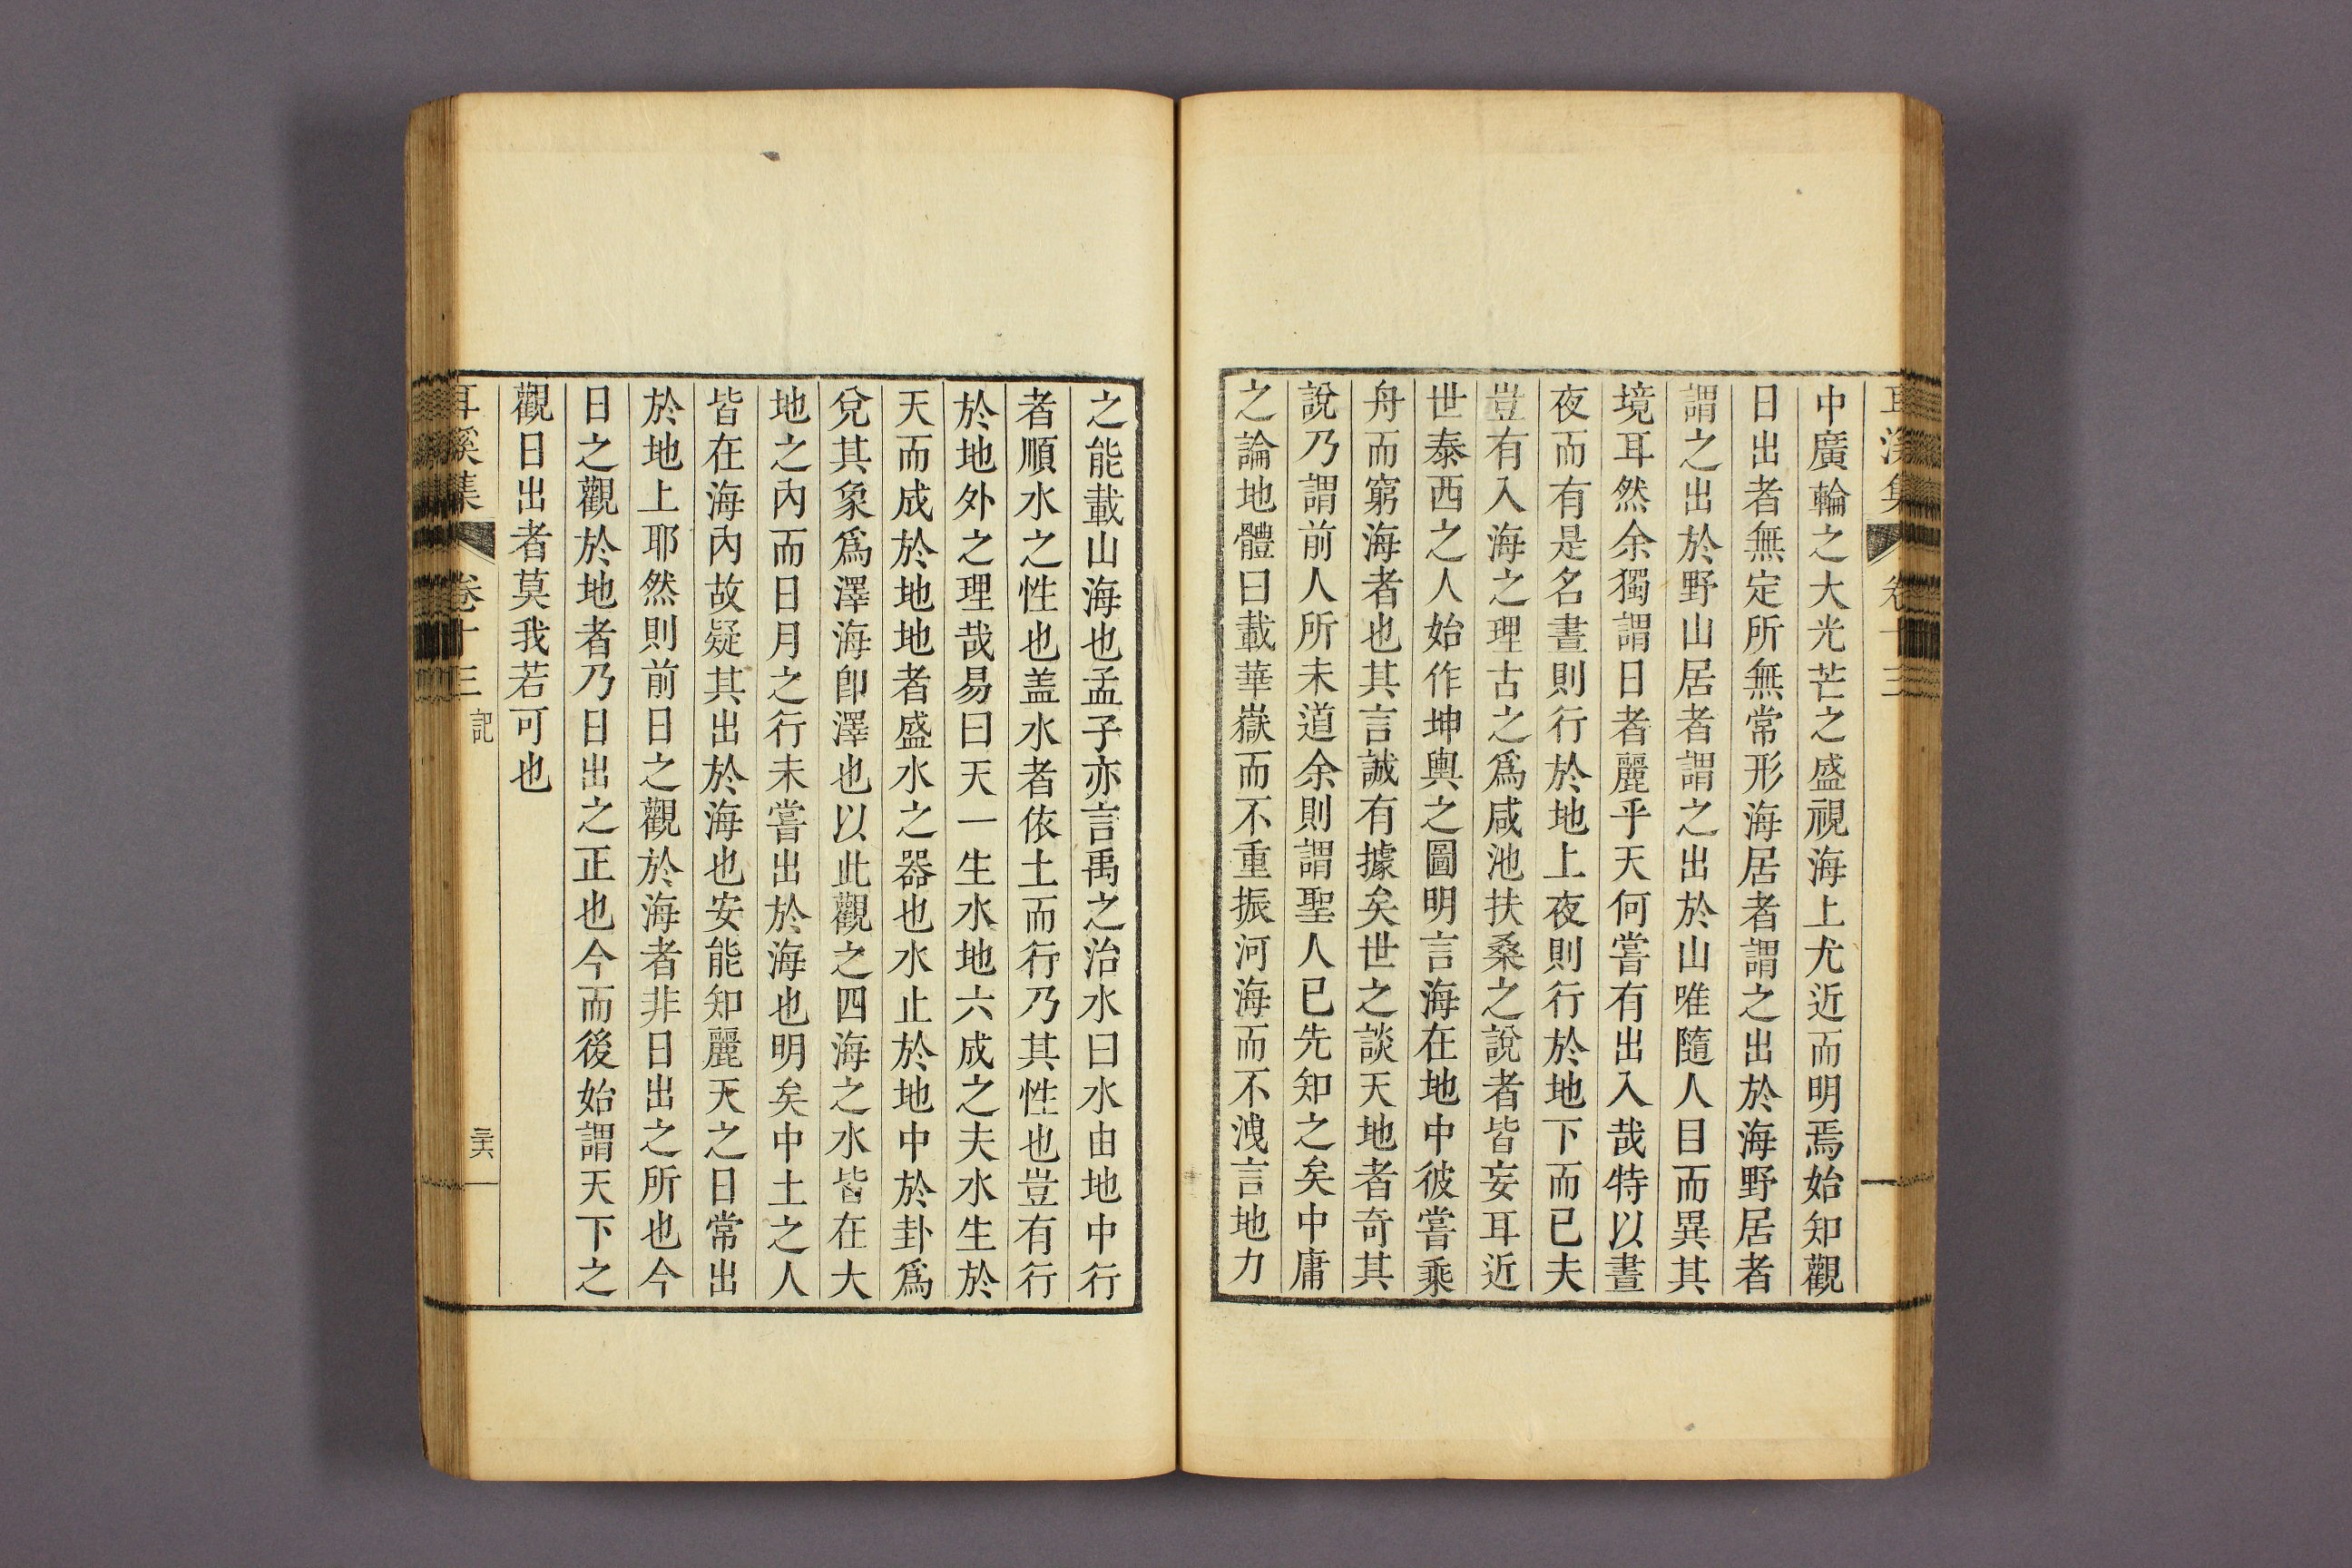 耳溪集 卷十三
中廣輪之大光芒之盛視海上尤近而明焉始知觀
日出者無定所無常形海居者謂之出於海野居者
謂之出於野山居者謂之出於山唯隨人目而異其
境耳然余獨謂日者麗乎天何嘗有出入哉特以晝
夜而有是名晝則行於地上夜則行於地下而已夫
豈有入海之理古之爲咸池扶桑之說者皆妄耳近
世泰西之人始作坤輿之圖明言海在地中彼嘗乘
舟而窮海者也其言誠有據矣世之談天地者奇其
說乃謂前人所未道余則謂聖人已先知之矣中庸
之論地體曰載華嶽而不重振河海而不洩言地力
之能載山海也孟子亦言禹之治水曰水由地中行
者順水之性也盖水者依土而行乃其性也豈有行
於地外之理哉易曰天一生水地六成之夫水生於
天而成於地地者盛水之器也水止於地中於卦爲
兌其象爲澤海卽澤也以此觀之四海之水皆在大
地之內而日月之行未嘗出於海也明矣中土之人
皆在海內故疑其出於海也安能知麗天之日常出
於地上耶然則前日之觀於海者非日出之所也今
日之觀於地者乃日出之正也今而後始謂天下之
觀日出者莫我若可也
耳溪集 卷十三 記 三六